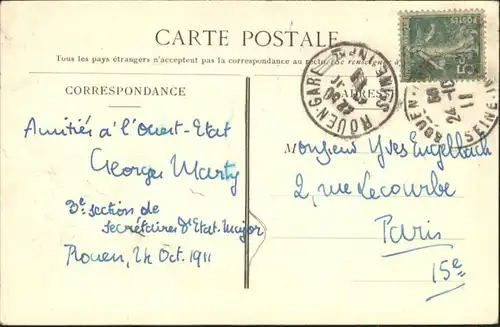 CARTE POSTALE
Tous les pays étrangers n'acceptent pas la correspondance au recto. (Se renseigner à
CORRESPONDANCE
ADRESSE
Amitiés à l'Ouest-Etat
Georges Marty
3e section de
secrétaires d'Etat-Major
Rouen, 24 Oct. 1911
Monsieur Yves Engelbach
2, rue Lecourbe
Paris
15e
ROUEN-GARE
SEINE INFRE
POSTES
5c
ROUEN
24-10
11
SEINE